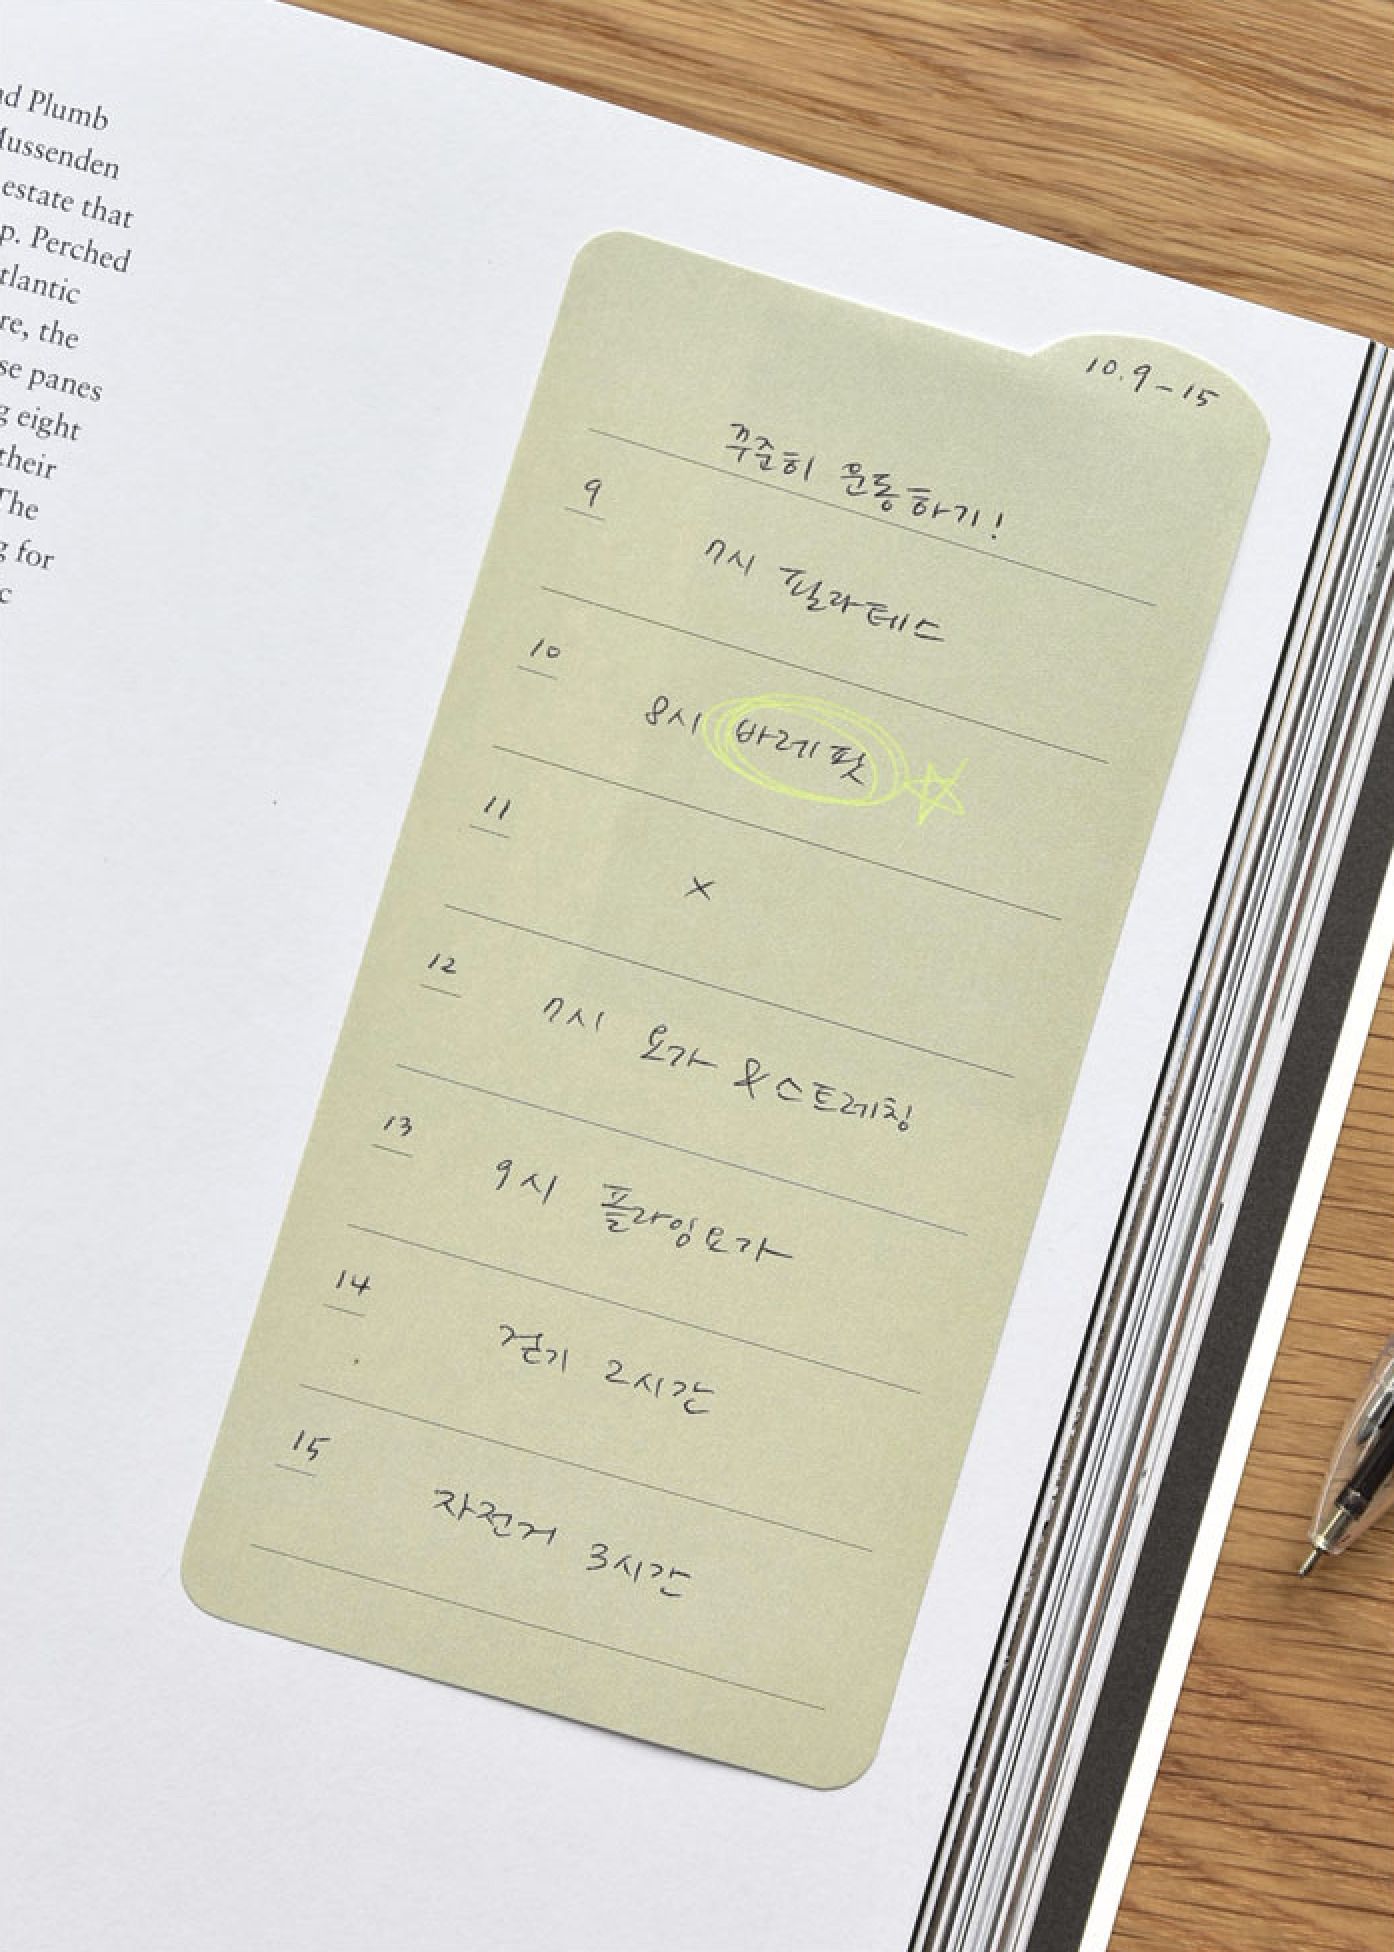 nd Plumb
Mussenden
estate that
p. Perched
tlantic
re, the
se panes
g eight
their
The
g for
c
10.9-15
꾸준히 운동하기!
9
7시 필라테스
10
8시 바레핏 ☆
11
×
12
7시 요가 & 스트레칭
13
9시 플라잉요가
14
걷기 2시간
15
자전거 3시간